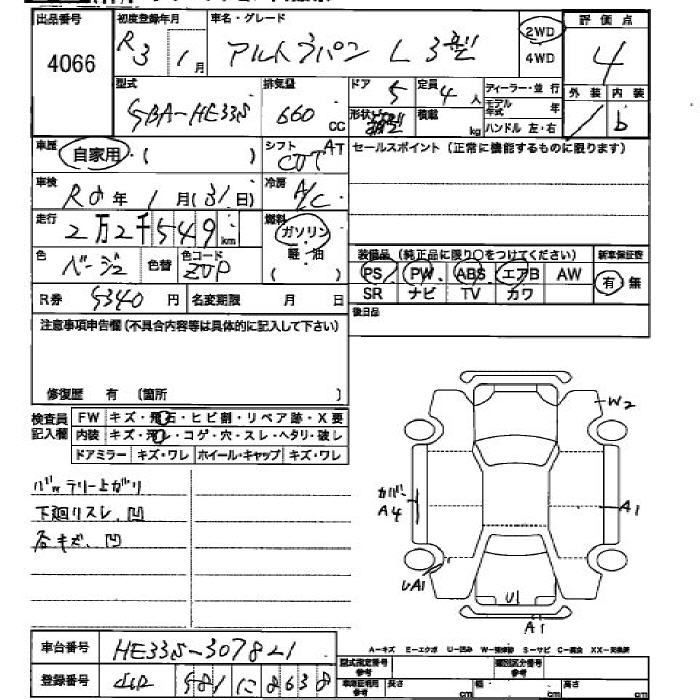 出品番号 初度登録年月 車名・グレード 評価点
4066 R3年 1月 アルトラパン L 3型 2WD 4WD 4
型式 排気量 ドア 5 定員 4人 ディーラー・並行 外装 内装
5BA-HE33S 660cc 形状 積載 kg モデル年式 年 ハンドル 左・右 b
車歴 自家用・( ) シフト CVT AT セールスポイント(正常に機能するものに限ります)
車検 R6年 1月(31日) 冷房 A/C
走行 2万2千549km 燃料 ガソリン 軽・油 ( )
色 ベージュ 色替 色コード ZVP 装備品(純正品に限り○をつけてください) 新車保証書
PS PW ABS エアB AW 有 無
SR ナビ TV カワ
R券 5340円 名変期限 月 日 後日品
注意事項申告欄(不具合内容等は具体的に記入して下さい)
修復歴 有 (箇所 )
検査員記入欄 FW キズ・飛石・ヒビ割・リペア跡・X要
内装 キズ・汚レ・コゲ・穴・スレ・ヘタリ・破レ
ドアミラー キズ・ワレ ホイール・キャップ キズ・ワレ
バッテリー上がり
下廻りスレ、凹
各キズ、凹
W2
カバー A4
A1
UA1
U1
A1
車台番号 HE33S-307821
A-キズ E-エクボ U-凹み W-補修跡 S-サビ C-腐食 XX-交換済
登録番号 581 に 8638
型式指定番号 参考 類別区分番号 参考
車庫証明用 参考 長さ cm 幅 cm 高さ cm